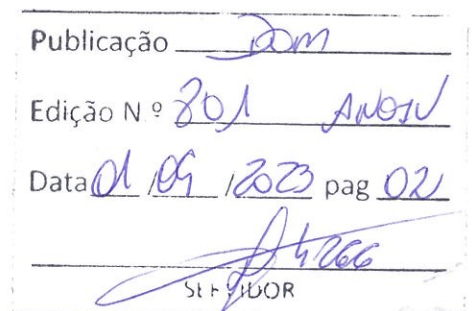 Publicação DOM
Edição N.º 801 ANO IV
Data 01/09/2023 pag 02
4266
SERVIDOR